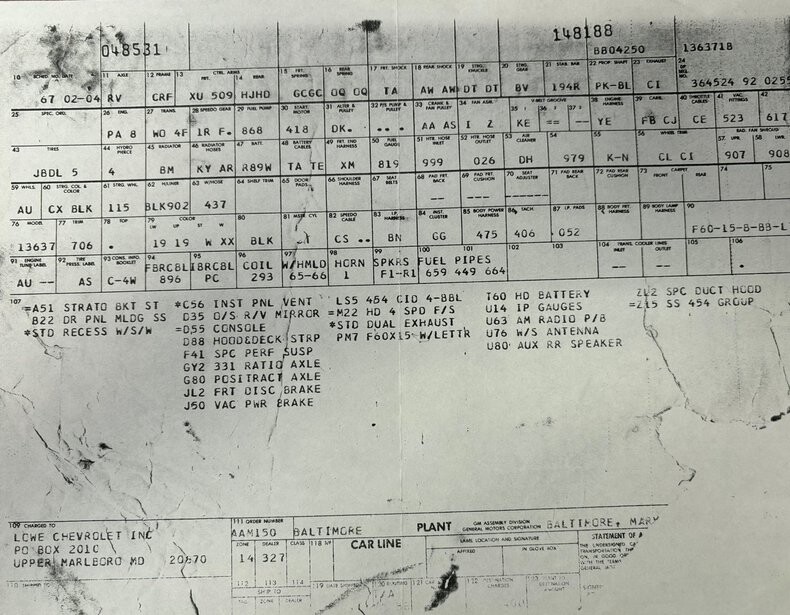 048531
148188
BB04250
136371B
10 SCHED. NO. DATE 11 AXLE 12 FRAME 13 CTRL. ARMS FRT. 14 REAR 15 FRT. SPRING 16 REAR SPRING 17 FRT. SHOCK 18 REAR SHOCK 19 STRG. KNUCKLE 20 STRG. GEAR 21 STAB. BAR 22 PROP. SHAFT 23 EXHAUST 24
67 02-04 RV CRF XU 509 HJHD GCGC OQ OQ TA AW AW DT DT BV 194R PK-BL CI 364524 92 0255
25 SPEC. ORD. 26 ENG. 27 TRANS. 28 SPEEDO GEAR 29 FUEL PUMP 30 START. MOTOR 31 ALTER & PULLEY 32 P/S PUMP & PULLEY 33 CRANK & FAN PULLEY 34 FAN ASM. V-BELT GROOVE 35 36 37 38 ENGINE HARNESS 39 CARB. 40 THROTTLE CABLES 41 42 VAC. FITTINGS
PA 8 WO 4F 1R F. 868 418 DK. . . . AA AS I Z KE == -- YE FB CJ CE 523 617
43 TIRES 44 HYDRO PIERCE 45 RADIATOR 46 RADIATOR HOSES 47 BATT. 48 BATTERY CABLES 49 FRT. END HARNESS 50 FUEL GAUGE 51 HTR. HOSE INLET 52 HTR. HOSE OUTLET 53 AIR CLEANER 54 55 56 WHEEL TRIM 57 UPR. 58 LWR.
JBDL 5 4 BM KY AR R89W TA TE XM 819 999 026 DH 979 K-N CL CI 907 908
59 WHLS. 60 STRG. COL. & COLOR 61 STRG. WHL. 62 H/LINER 63 W/HOSE 64 SHELF TRIM 65 DOOR PADS 66 SHOULDER HARNESS 67 SEAT BELTS 68 PAD FRT. BACK 69 PAD FRT. CUSHION 70 SEAT ADJUSTER 71 PAD REAR BACK 72 PAD REAR CUSHION 73 CARPET FRONT REAR 74 75
AU CX BLK 115 BLK902 437
76 MODEL 77 TRIM 78 TOP 79 COLOR LW UP ST W 80 81 MAST. CYL 82 SPEEDO CABLE 83 I.P. HARNESS 84 INST. CLUSTER 85 BODY POWER HARNESS 86 TACH. 87 I.P. PADS 88 BODY FRT. HARNESS 89 BODY LAMP HARNESS 90
13637 706 . 19 19 W XX BLK T CS .. BN GG 475 406 052 F60-15-B-BB-L
91 ENGINE TUNE LABEL 92 TIRE PRESS. LABEL 93 CONS. INFO. BOOKLET 94 95 96 97 98 99 100 101 102 103 104 TRANS. COOLER LINES INLET OUTLET 105 106
AU -- AS C-4W FBRCBL 896 IBRCBL PC COIL 293 W/HMLD 65-66 HORN 1 SPKRS F1-R1 FUEL PIPES 659 449 664
107
=A51 STRATO BKT ST *C56 INST PNL VENT LS5 454 CID 4-BBL T60 HD BATTERY ZL2 SPC DUCT HOOD
B22 DR PNL MLDG SS D35 O/S R/V MIRROR =M22 HD 4 SPD F/S U14 IP GAUGES =Z15 SS 454 GROUP
*STD RECESS W/S/W =D55 CONSOLE *STD DUAL EXHAUST U63 AM RADIO P/B
D88 HOOD&DECK STRP PM7 F60X15 W/LETTR U76 W/S ANTENNA
F41 SPC PERF SUSP U80 AUX RR SPEAKER
GY2 331 RATIO AXLE
G80 POSITRACT AXLE
JL2 FRT DISC BRAKE
J50 VAC PWR BRAKE
109 CHARGED TO 111 ORDER NUMBER PLANT GM ASSEMBLY DIVISION GENERAL MOTORS CORPORATION BALTIMORE, MARY
LOWE CHEVROLET INC AAM150 BALTIMORE
PO BOX 2010 ZONE DEALER CLASS CAR LINE SAME LOCATION AND SIGNATURE STATEMENT OF
UPPER MARLBORO MD 20870 14 327 AFFIXED IN GLOVE BOX
112 113 114 SHIP TO
ZONE DEALER